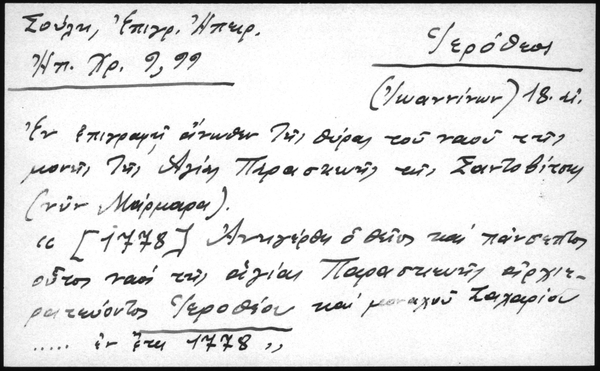 Σούλη, Ἐπιγρ. Ἠπειρ.
Ἠπ. Χρ. 9, 99
Ἱερόθεος
(Ἰωαννίνων) 18. αἰ.
Ἐν ἐπιγραφῇ ἄνωθεν τῆς θύρας τοῦ ναοῦ τῆς
μονῆς τῆς Ἁγίας Παρασκευῆς τῆς Σαντοβίτσης
(νῦν Μάρμαρα).
“ [1778] Ἀνηγέρθη ὁ θεῖος καὶ πάνσεπτος
οὗτος ναὸς τῆς ἁγίας Παρασκευῆς ἀρχιε-
ρατεύοντος Ἱεροθέου καὶ μοναχοῦ Ζαχαρίου
..... ἐν ἔτει 1778 ”